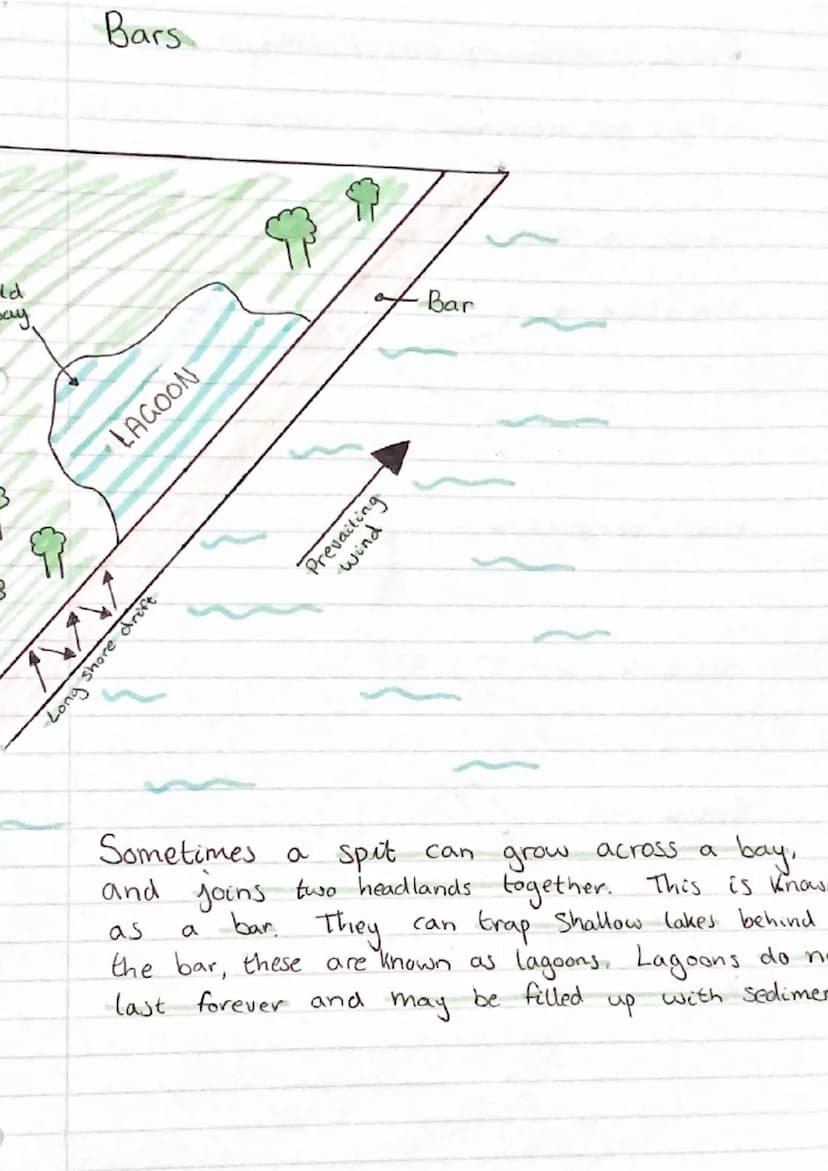 Bars
ld
ay
Bar
LAGOON
Prevailing
wind
Long shore drift
Sometimes a spit can grow across a bay,
and joins two headlands together. This is know
as a bar. They can trap shallow lakes behind
the bar, these are known as lagoons. Lagoons do n
last forever and may be filled up with sedimen